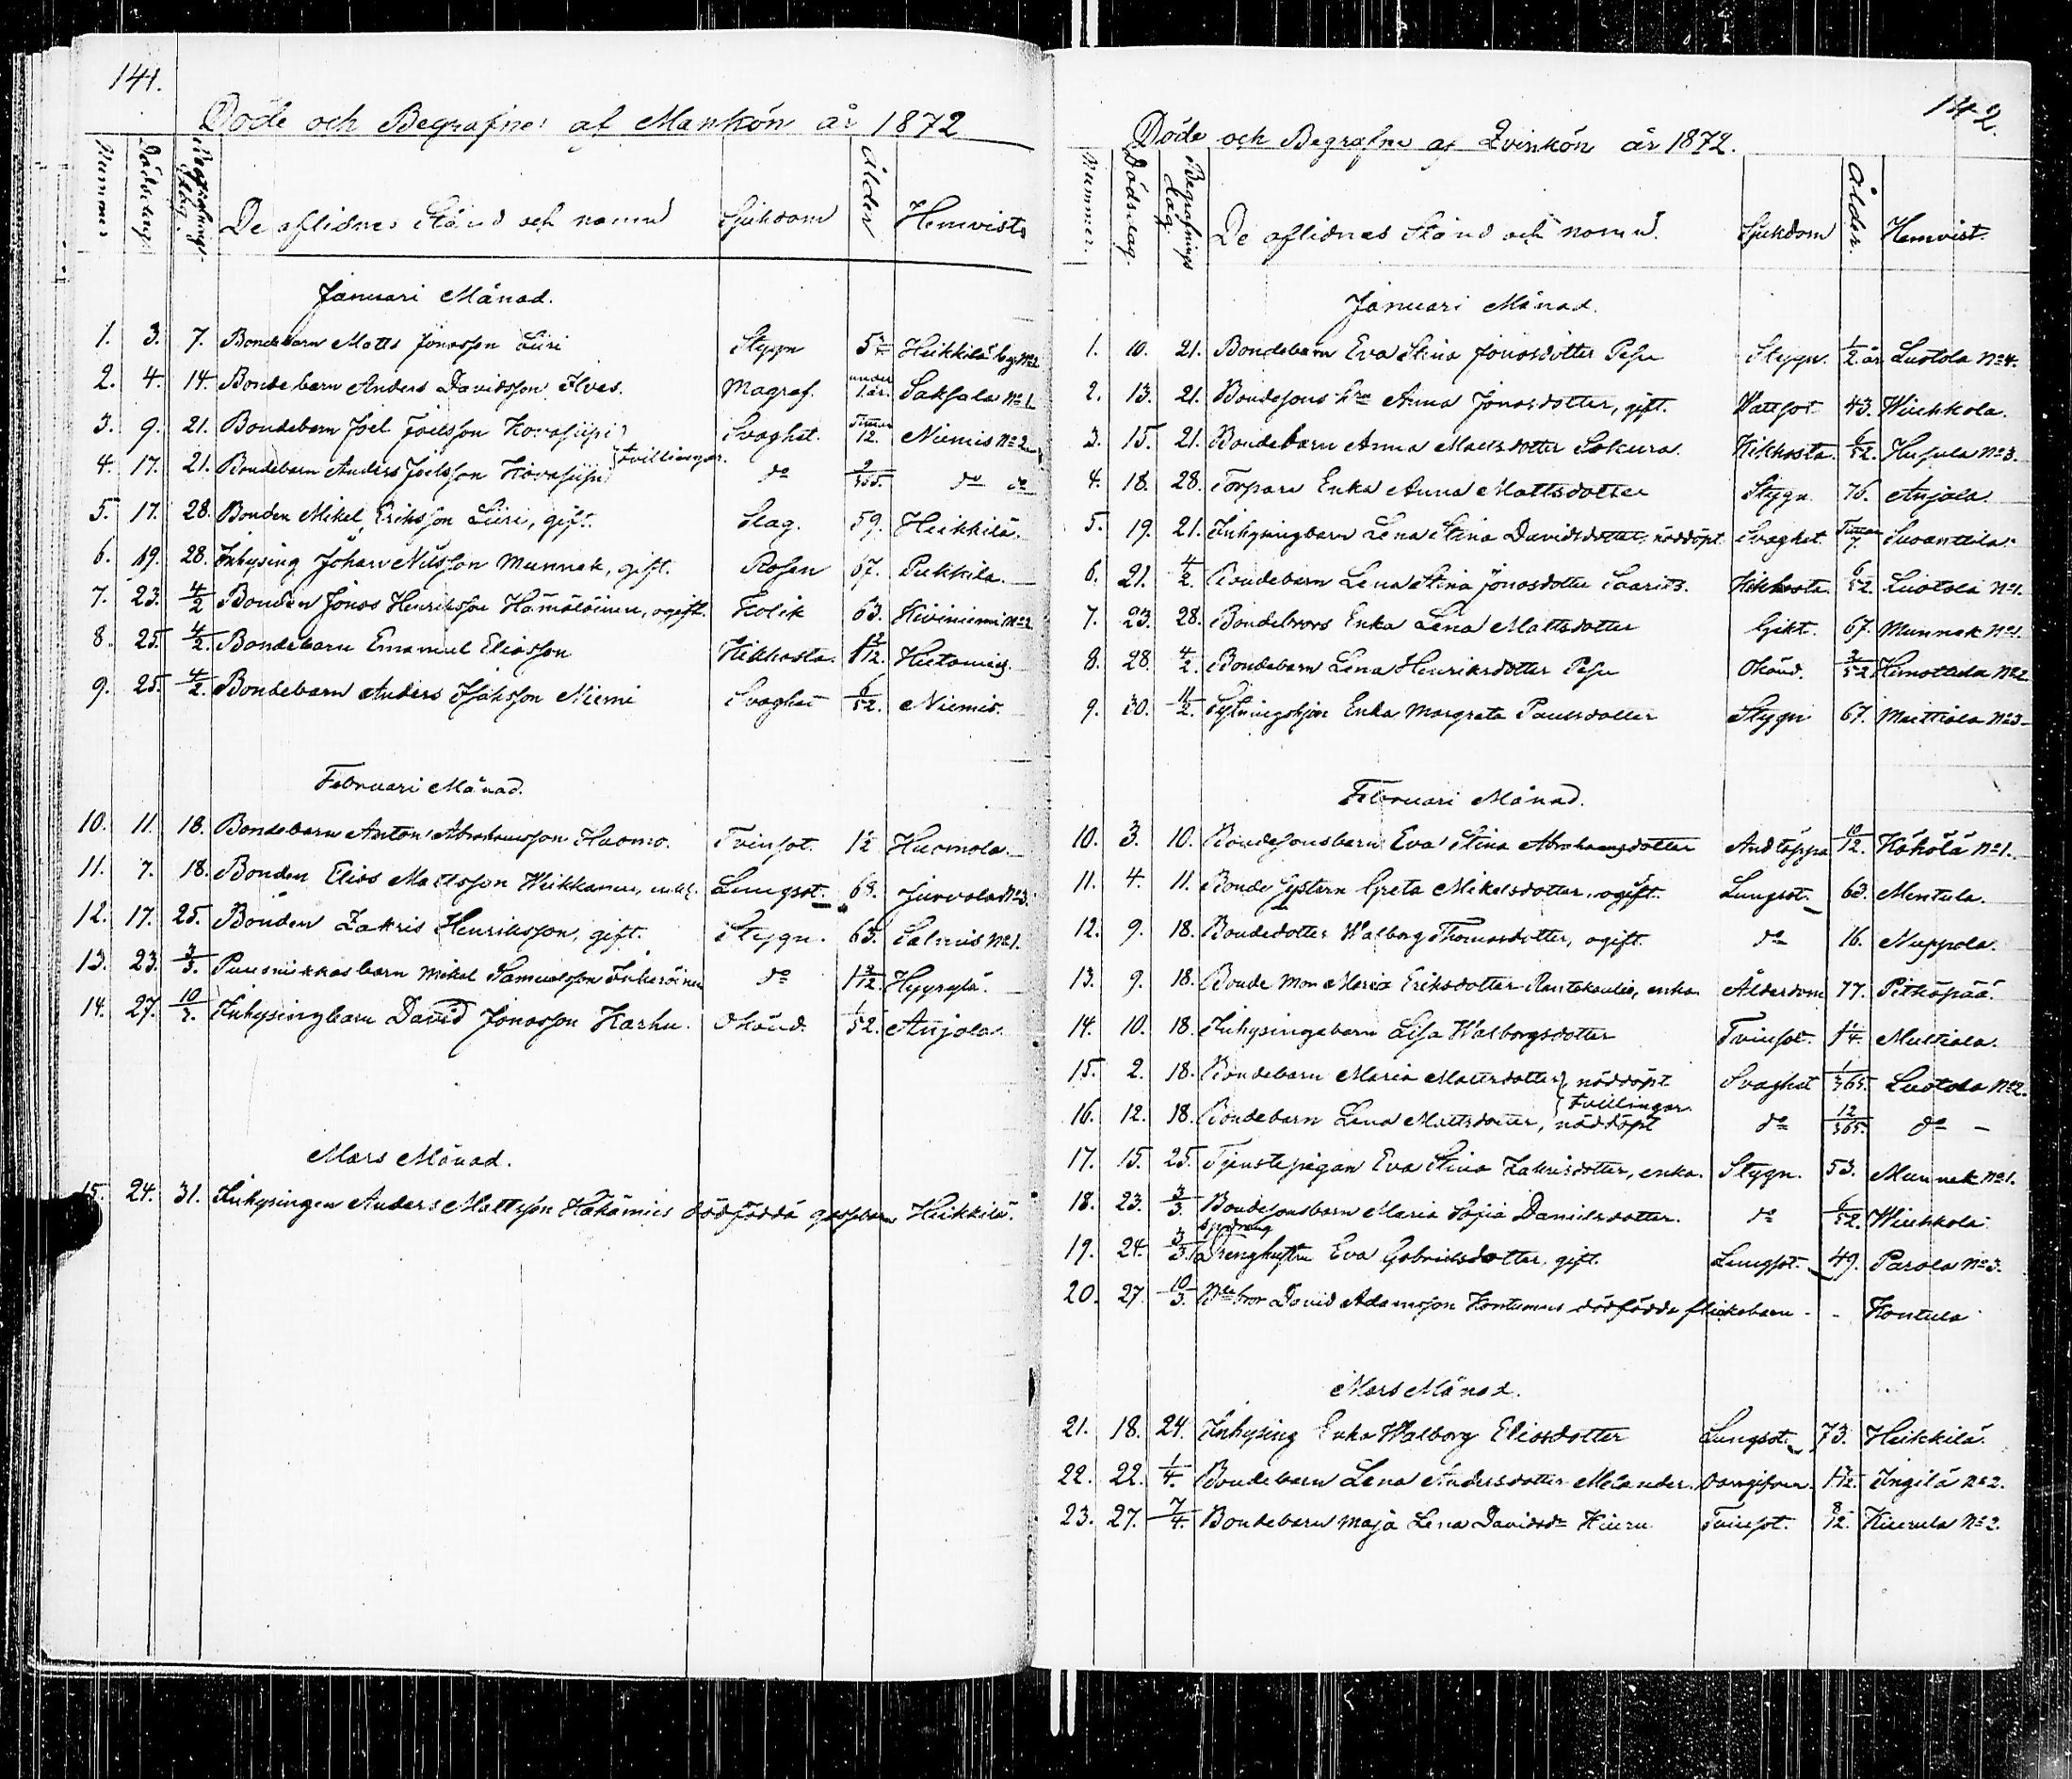 141.
Döde och Begrafne af Mankön år 1872
Nummer Dödsdag Begrafnings dag. De aflidnes Stånd och namn Sjukdom Ålder Hemvist
Januari Månad.
1. 3. 7. Bondebarn Matts Jonasson Liiri Stygn Heikkilä
2. 4. 14. Bondebarn Anders Davidsson Ilves. Magraf. under 1 år. Saksala No 1
3. 9. 21. Bondebarn Joel Joelsson Svaghet. Timar 12. Niemis No 2
tvillingar.
4. 17. 21. Bondebarn Anders Joelsson do 9/365. do do
5. 17. 28. Bonden Mikel Eriksson Liiri, gift. Slag. 59. Heikkilä.
6. 19. 28. Inhysing Johan Nilsson Munnek, gift. Rosen 67. Pukkila.
7. 23. 4/2 Bonden Jonas Henriksson Hämäläinen, ogift. Kolik 63. Kiviniemi No 2
8. 25. 4/2. Bondebarn Emanuel Eliasson Kikhosta.
9. 25. 4/2. Bondebarn Anders Isaksson Niemi Svaghet 6/52. Niemis.
Februari Månad.
10. 11. 18. Bondebarn Anton Abrahamsson Huomo. Tvinsot. 1½ Huomola.
11. 7. 18. Bonden Elias Mattsson Heikkanen, Lungsot. 68. Jurvala No 3.
12. 17. 25. Bonden Zakris Henriksson, gift. Stygn. 63. Salmis No 1.
13. 23. 3/3. barn Mikel Samuelsson do Hyyrylä.
14. 27. 10/3. Inhysingbarn David Jonasson Karhu. Okänd. 1/52. Anjala.
Mars Månad.
15. 24. 31. Inhysingen Anders Mattsson Hakämies dödfödda gossbarn Heikkilä.
142.
Döde och Begrafne af Qvinkön år 1872.
Nummer. Dödsdag. Begrafnings dag. De aflidnas Stånd och namn. Sjukdom Ålder. Hemvist.
Januari Månad.
1. 10. 21. Bondebarn Eva Stina Jonasdotter Pesu Stygn. ½ år Luotola No 4.
2. 13. 21. Bondesons hru Anna Jonasdotter, gift. Vattsot 43. Wiukkola.
3. 15. 21. Bondebarn Anna Mattsdotter Sokura. Kikhosta. 6/52. Husula No 3.
4. 18. 28. Torpare Enka Anna Mattsdotter Stygn. 76. Anjala.
5. 19. 21. Inhysingbarn Lena Stina Davidsdotter, nöddöpt Svaghet. Timar 7. Suoanttila.
6. 21. 4/2. Bondebarn Lena Stina Jonasdotter Kikhosta. 6/52. Luotola No 1.
7. 23. 28. Bondebrors Enka Lena Mattsdotter Gikt. 67. Munnek No 1.
8. 28. 4/2. Bondebarn Lena Henriksdotter Pesu Okänd. 2/52 No 2
9. 30. 11/2. Sytningshjon Enka Margreta Paulsdotter Stygn 67. Mattiala No 3
Februari Månad.
10. 3. 10. Bondesonsbarn Eva Stina Abrahamsdotter Andtäppa 10/12. Käkölä No 1.
11. 4. 11. Bonde Systern Greta Mikelsdotter, ogift. Lungsot. 63. Mentula.
12. 9. 18. Bondedotter Walborg Thomasdotter, ogift. do 16. Nuppola.
13. 9. 18. Bonde Mor Maria Eriksdotter enka Ålderdom 77. Pitkäpää.
14. 10. 18. Inhysingebarn Lisa Walborgsdotter Tvinsot. 1¼ Multiala.
15. 2. 18. Bondebarn Maria Mattsdotter, nöddöpt Svaghet 1/365. Luotola No 2.
tvillingar.
16. 12. 18. Bondebarn Lena Mattsdotter, nöddöpt do 12/365. do -
17. 15. 25. Tjenstepigan Eva Stina Zakrisdotter, enka. Stygn. 53. Munnek No 1.
18. 23. 3/3. Bondesonsbarn Maria Sofia Danielsdotter. do 6/52. Wiukkola.
19. 24. 3/3. Drenghustru Eva Gabrielsdotter, gift. Lungsot. 49. Parola No 3.
20. 27. 10/3. Bde bror David Adamsson Kontunus dödfödda flickebarn - - Kontula
Mars Månad.
21. 18. 24. Inhysing Enka Walborg Eliasdotter Lungsot. 73. Heikkilä.
22. 22. 1/4. Bondebarn Lena Andersdotter Melander. Ingilä No 2.
23. 27. 7/4. Bondebarn Maja Lena Davidsdr Kiuru. Tvinsot. 8/12. Kiurula No 2.